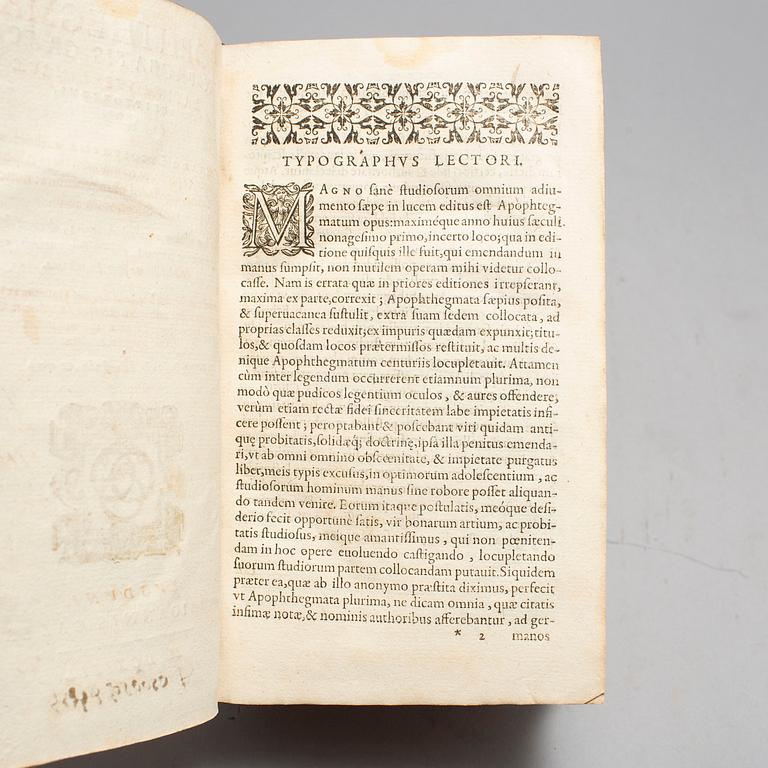 TYPOGRAPHVS LECTORI.
MAGNO sanè studiosorum omnium adiu-
mento sæpe in lucem editus est Apophteg-
matum opus: maximéque anno huius sæculi
nonagesimo primo, incerto loco; qua in edi-
tione quisquis ille fuit, qui emendandum in
manus sumpsit, non inutilem operam mihi videtur collo-
casse. Nam is errata quæ in priores editiones irrepserant,
maxima ex parte, correxit; Apophthegmata sæpius posita,
& superuacanea sustulit, extra suam sedem collocata, ad
proprias classes reduxit; ex impuris quædam expunxit; titu-
los, & quosdam locos prætermissos restituit, ac multis de-
nique Apophthegmatum centuriis locupletauit. Attamen
cùm inter legendum occurrerent etiamnum plurima, non
modò quæ pudicos legentium oculos, & aures offendere,
verùm etiam rectæ fidei sinceritatem labe impietatis infi-
cere possent; peroptabant & poscebant viri quidam anti-
quę probitatis, solidæq́; doctrinę, ipsa illa penitus emenda-
ri, vt ab omni omnino obscœnitate, & impietate purgatus
liber, meis typis excusus, in optimorum adolescentium, ac
studiosorum hominum manus sine robore posset aliquan-
do tandem venire. Eorum itaque postulatis, meóque desi-
derio fecit opportunè satis, vir bonarum artium, ac probi-
tatis studiosus, meique amantissimus, qui non pœniten-
dam in hoc opere euoluendo castigando, locupletando
suorum studiorum partem collocandam putauit. Siquidem
præter ea, quæ ab illo anonymo præstita diximus, perfecit
vt Apophthegmata plurima, ne dicam omnia, quæ citatis
infimæ notæ, & nominis authoribus afferebantur, ad ger-
* 2 manos